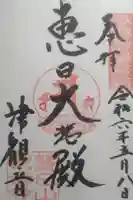 奉拝
令和六年五月八日
恵日大悲殿
津観音